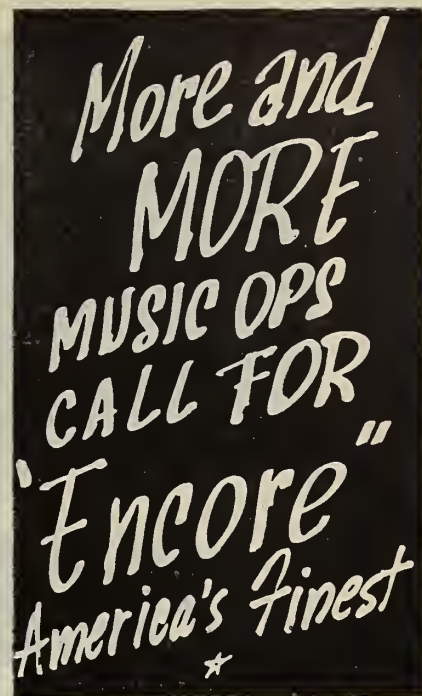 More and
MORE
MUSIC OPS
CALL FOR
"Encore"
America's Finest